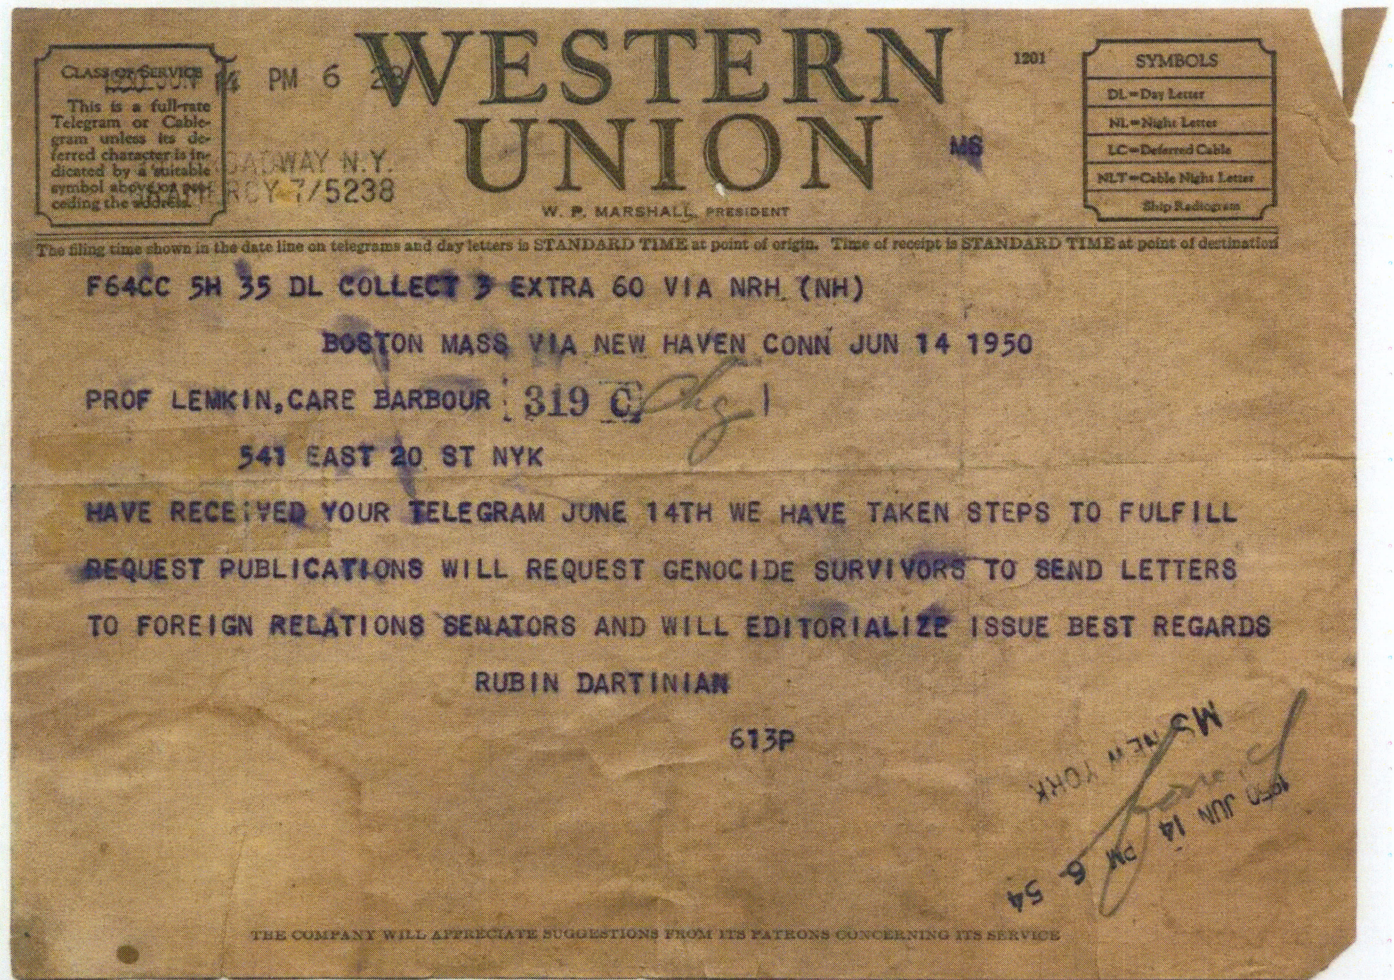 WESTERN
UNION
1201
MS
W. P. MARSHALL, PRESIDENT
CLASS OF SERVICE
This is a full-rate
Telegram or Cable-
gram unless its de-
ferred character is in-
dicated by a suitable
symbol above or pre-
ceding the address.
JUN 14 PM 6 28
N.Y.
7/5238
SYMBOLS
DL=Day Letter
NL=Night Letter
LC=Deferred Cable
NLT=Cable Night Letter
Ship Radiogram
The filing time shown in the date line on telegrams and day letters is STANDARD TIME at point of origin. Time of receipt is STANDARD TIME at point of destination
F64CC 5H 35 DL COLLECT 3 EXTRA 60 VIA NRH (NH)
BOSTON MASS VIA NEW HAVEN CONN JUN 14 1950
PROF LEMKIN,CARE BARBOUR 319 C Chg
541 EAST 20 ST NYK
HAVE RECEIVED YOUR TELEGRAM JUNE 14TH WE HAVE TAKEN STEPS TO FULFILL
REQUEST PUBLICATIONS WILL REQUEST GENOCIDE SURVIVORS TO SEND LETTERS
TO FOREIGN RELATIONS SENATORS AND WILL EDITORIALIZE ISSUE BEST REGARDS
RUBIN DARTINIAN
613P
MS NEW YORK
1950 JUN 14 PM 6 54
THE COMPANY WILL APPRECIATE SUGGESTIONS FROM ITS PATRONS CONCERNING ITS SERVICE